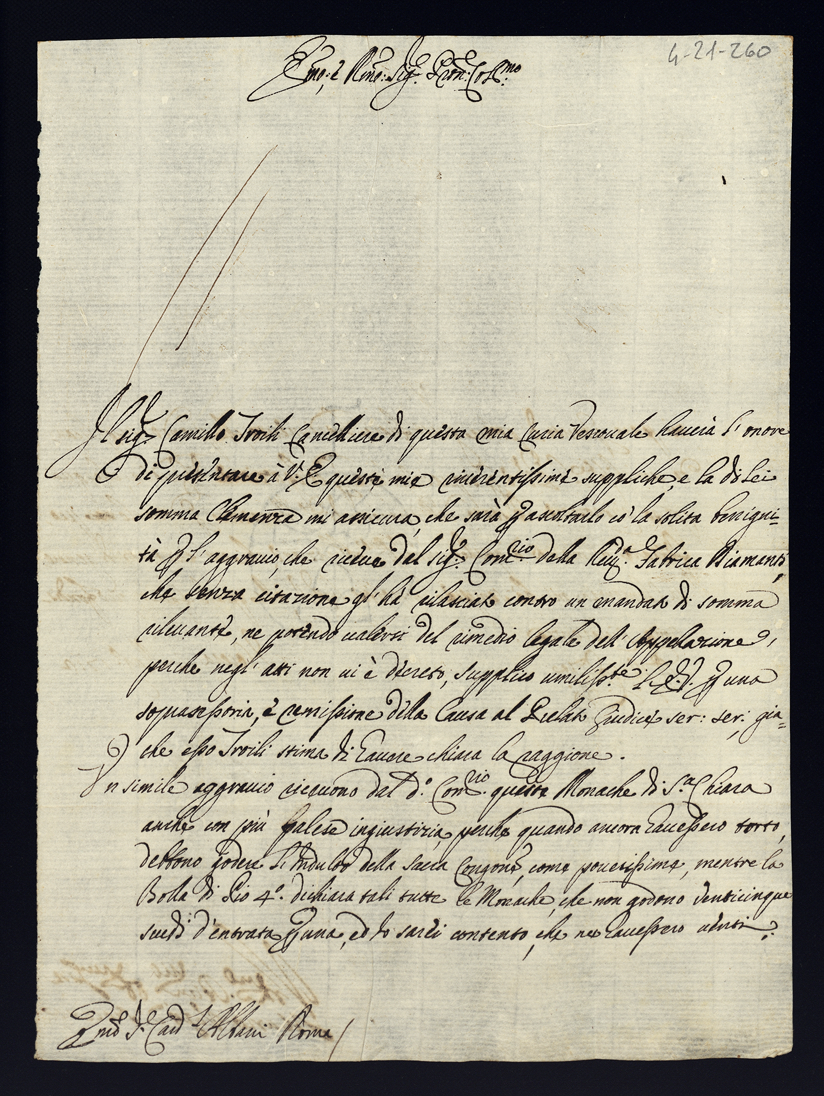 4-21-260
Emo: e Rmo: Sigre. Pron: Colmo
Il sigr. Camillo Troili Cancelliere di questa mia Curia Vescouale hauerà l'onore
di presentare à V: E queste mie riuerentissime suppliche, e la di Lei
somma Clemenza mi assicura, che sarà p ascoltarlo cò la solita benigni=
tà p l'aggrauio, che riceue dal sigr. Comrio della Reua. Fabrica Diamanti,
che senza citazione gl'hà rilasciat contro un mandat di somma
rileuante, ne potendo ualersi del rimedio legale dell'Appellazione,
perche negl'atti non ui è decreto, supplico umilissate. l'E.V. p una
soprasessoria, è remissione della Causa al Prelat Giudice ser: ser: gia=
che esso Troili stima di hauere chiara la raggione.
Un simile aggrauio riceuono dal do. Comrio. queste Monache di Sta Chiara
anche con più palese ingiustizia, perche quando ancora hauessero torto,
debbono godere l'Indulto della Sacra Congone, come pouerissime, mentre la
Bolla di Pio 4o. dichiara tali tutte le Monache, che non godono venticinque
scudi d'entrata p una, ed Io sarei contento, che ne hauessero uenti.
Sr Card l Albani Roma